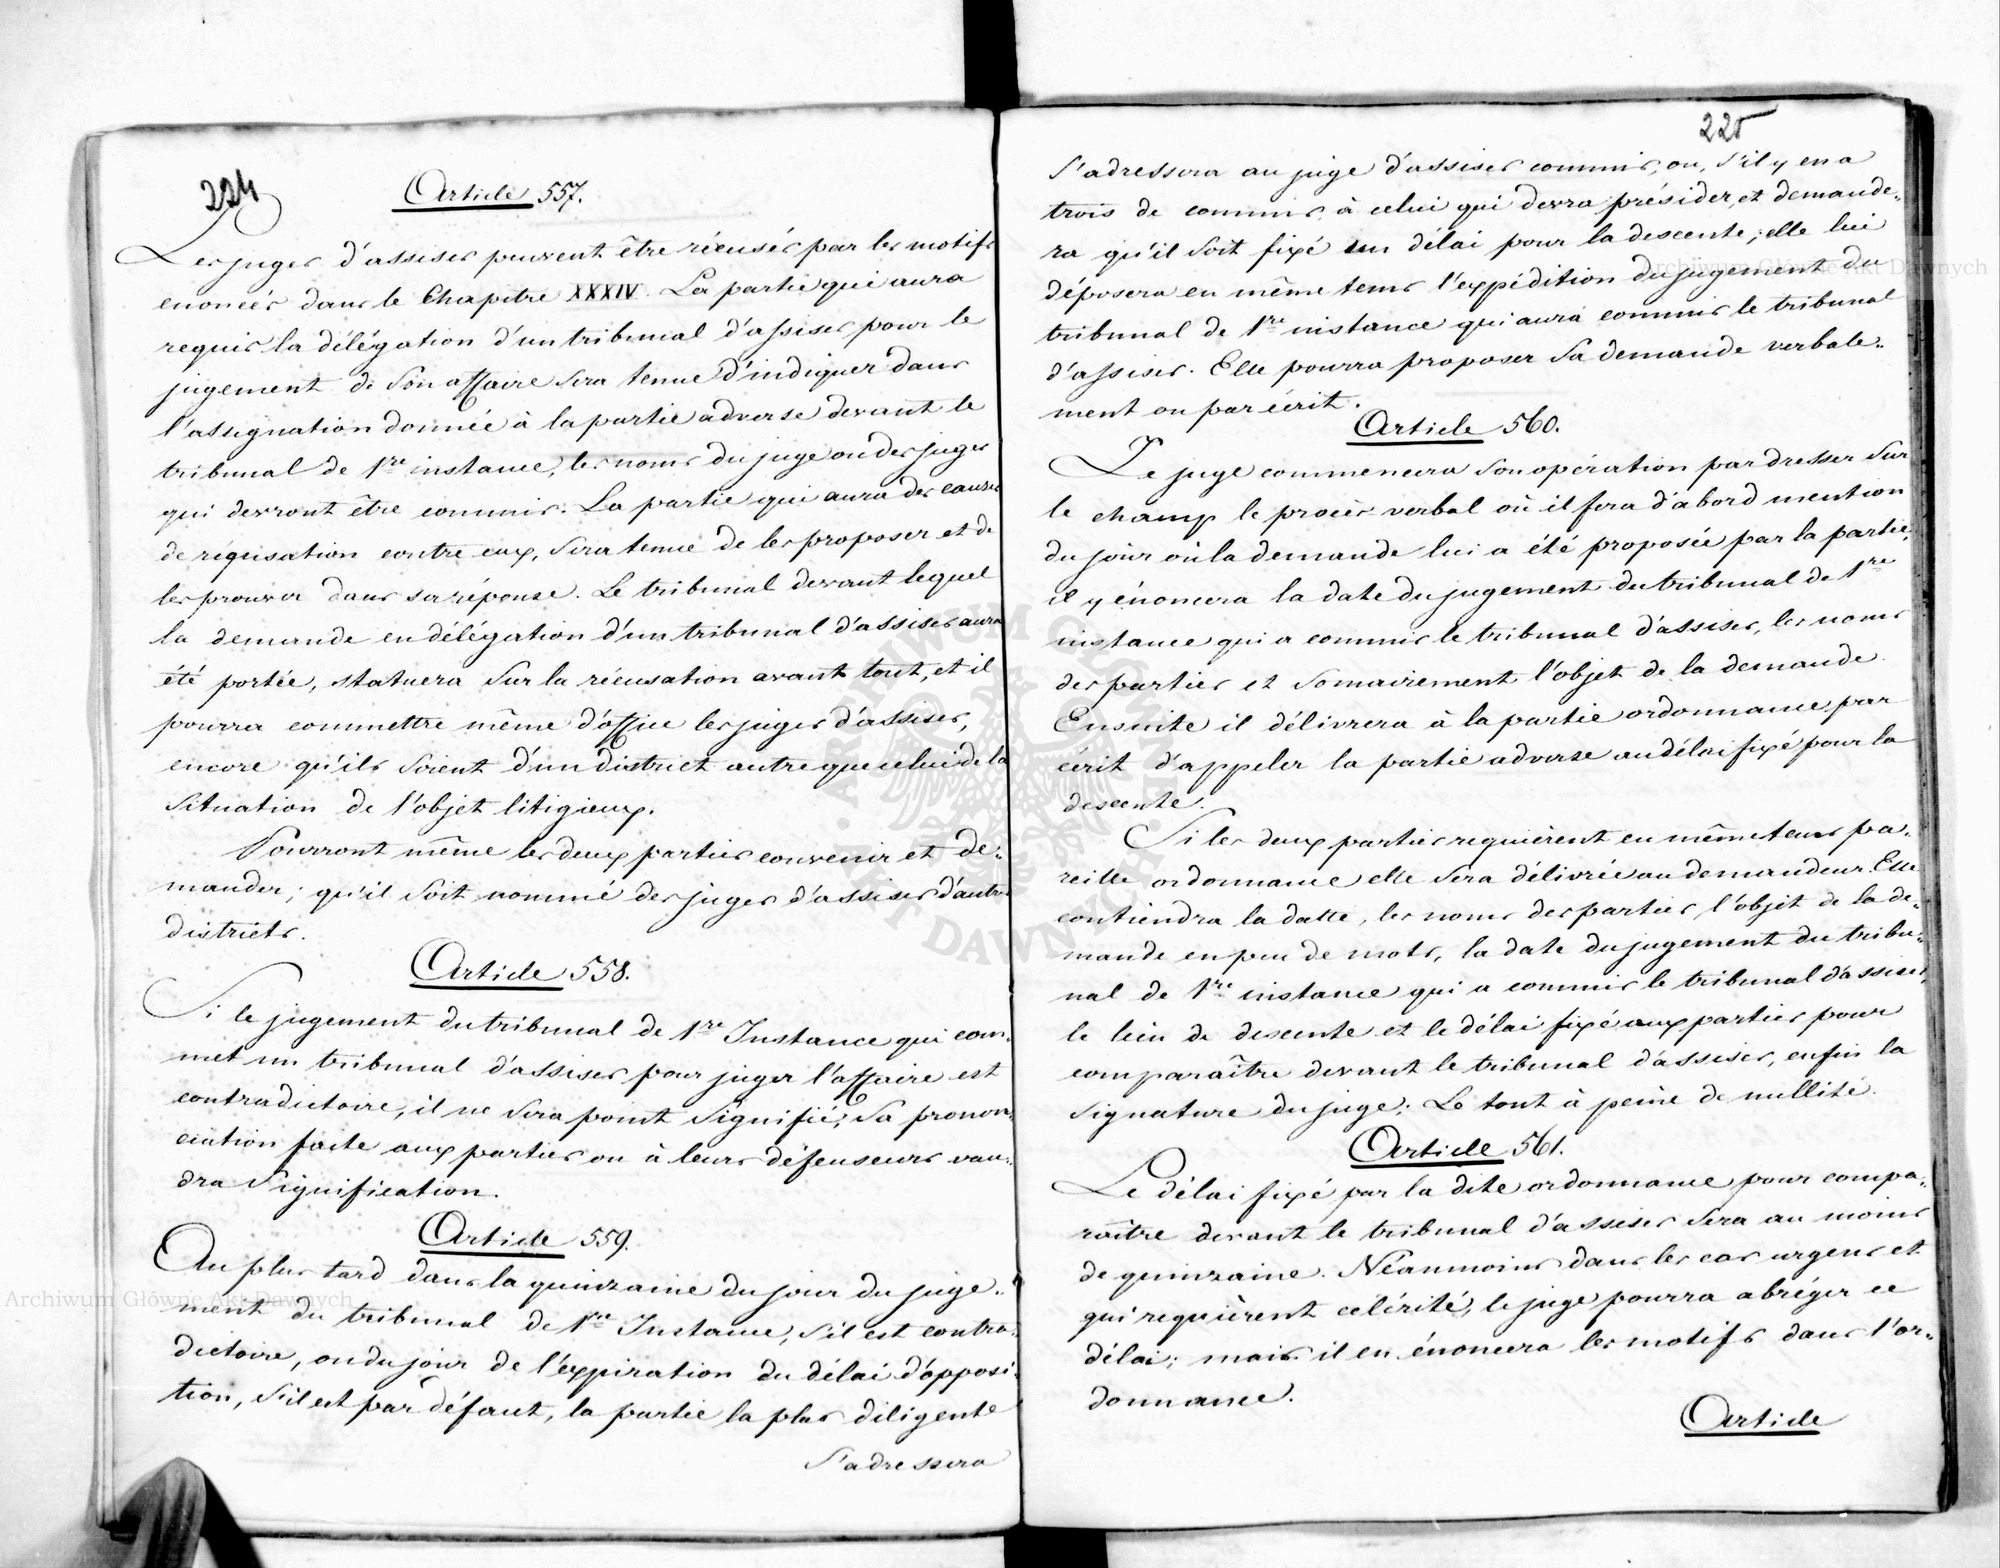 224
Article 557.
Les juges d'assises peuvent être récusés par les motifs
enoncés dans le Chapitre XXXIV. La partie qui aura
requis la délégation d'un tribunal d'assises pour le
jugement de son affaire sera tenue d'indiquer dans
l'assignation donnée à la partie adverse devant le
tribunal de 1re instance, les noms du juge ou des juges
qui devront être commis. La partie qui aura des causes
de réqusation contre eux, sera tenue de les proposer et de
les prouver dans sa réponse. Le tribunal devant lequel
la demande en délégation d'un tribunal d'assises aura
été portée, statuera sur la récusation avant tout, et il
pourra commettre même d'office les juges d'assises,
encore qu'ils soient d'un district autre que celui de la
situation de l'objet litigieux.
Pourront même les deux parties convenir et de-
mander; qu'il soit nommé des juges d'assises d'autres
districts.
Article 558.
Si le jugement du tribunal de 1re Instance qui com-
met un tribunal d'assises pour juger l'affaire est
contradictoire, il ne sera point signifié; sa pronon-
ciation faite aux parties ou à leurs défenseurs vau-
dra signification.
Article 559.
Au plus tard dans la quinzaine du jour du juge-
ment du tribunal de 1re Instance, s'il est contra-
dictoire, ou du jour de l'expiration du délai d'opposi-
tion, s'il est par défaut, la partie la plus diligente
s'adressera
225
s'adressera au juge d'assises commis, ou, s'il y en a
trois de commis, à celui qui devra présider, et demande-
ra qu'il soit fixé un délai pour la descente; elle lui
déposera en même tems l'expédition du jugement du
tribunal de 1re instance qui aura commis le tribunal
d'assises. Elle pourra proposer sa demande verbale-
ment ou par écrit.
Article 560.
Le juge commencera son opération par dresser sur
le champ le procès verbal où il fera d'abord mention
du jour où la demande lui a été proposée par la partie,
il y énoncera la date du jugement du tribunal de 1re
instance qui a commis le tribunal d'assises, les noms
des parties et somairement l'objet de la demande.
Ensuite il délivrera à la partie ordonnance par
écrit d'appeler la partie adverse au délai fixé pour la
descente.
Si les deux parties requièrent en même tems pa-
reille ordonnance elle sera délivrée au demandeur. Elle
contiendra la datte, les noms des parties, l'objet de la de-
mande en peu de mots, la date du jugement du tribu-
nal de 1re instance qui a commis le tribunal d'assises,
le lieu de descente et le délai fixé aux parties pour
comparaître devant le tribunal d'assises, enfin la
signature du juge; Le tout à peine de nullité.
Article 561.
Le délai fixé par la dite ordonnance pour compa-
raître devant le tribunal d'assises sera au moins
de quinzaine. Néanmoins dans les cas urgens et
qui requièrent célérité, le juge pourra abréger ce
délai; mais il en énoncera les motifs dans l'or-
donnance.
Article
Archiwum Główne Akt Dawnych
Archiwum Główne Akt Dawnych
ARCHIWUM GŁÓWNE AKT DAWNYCH